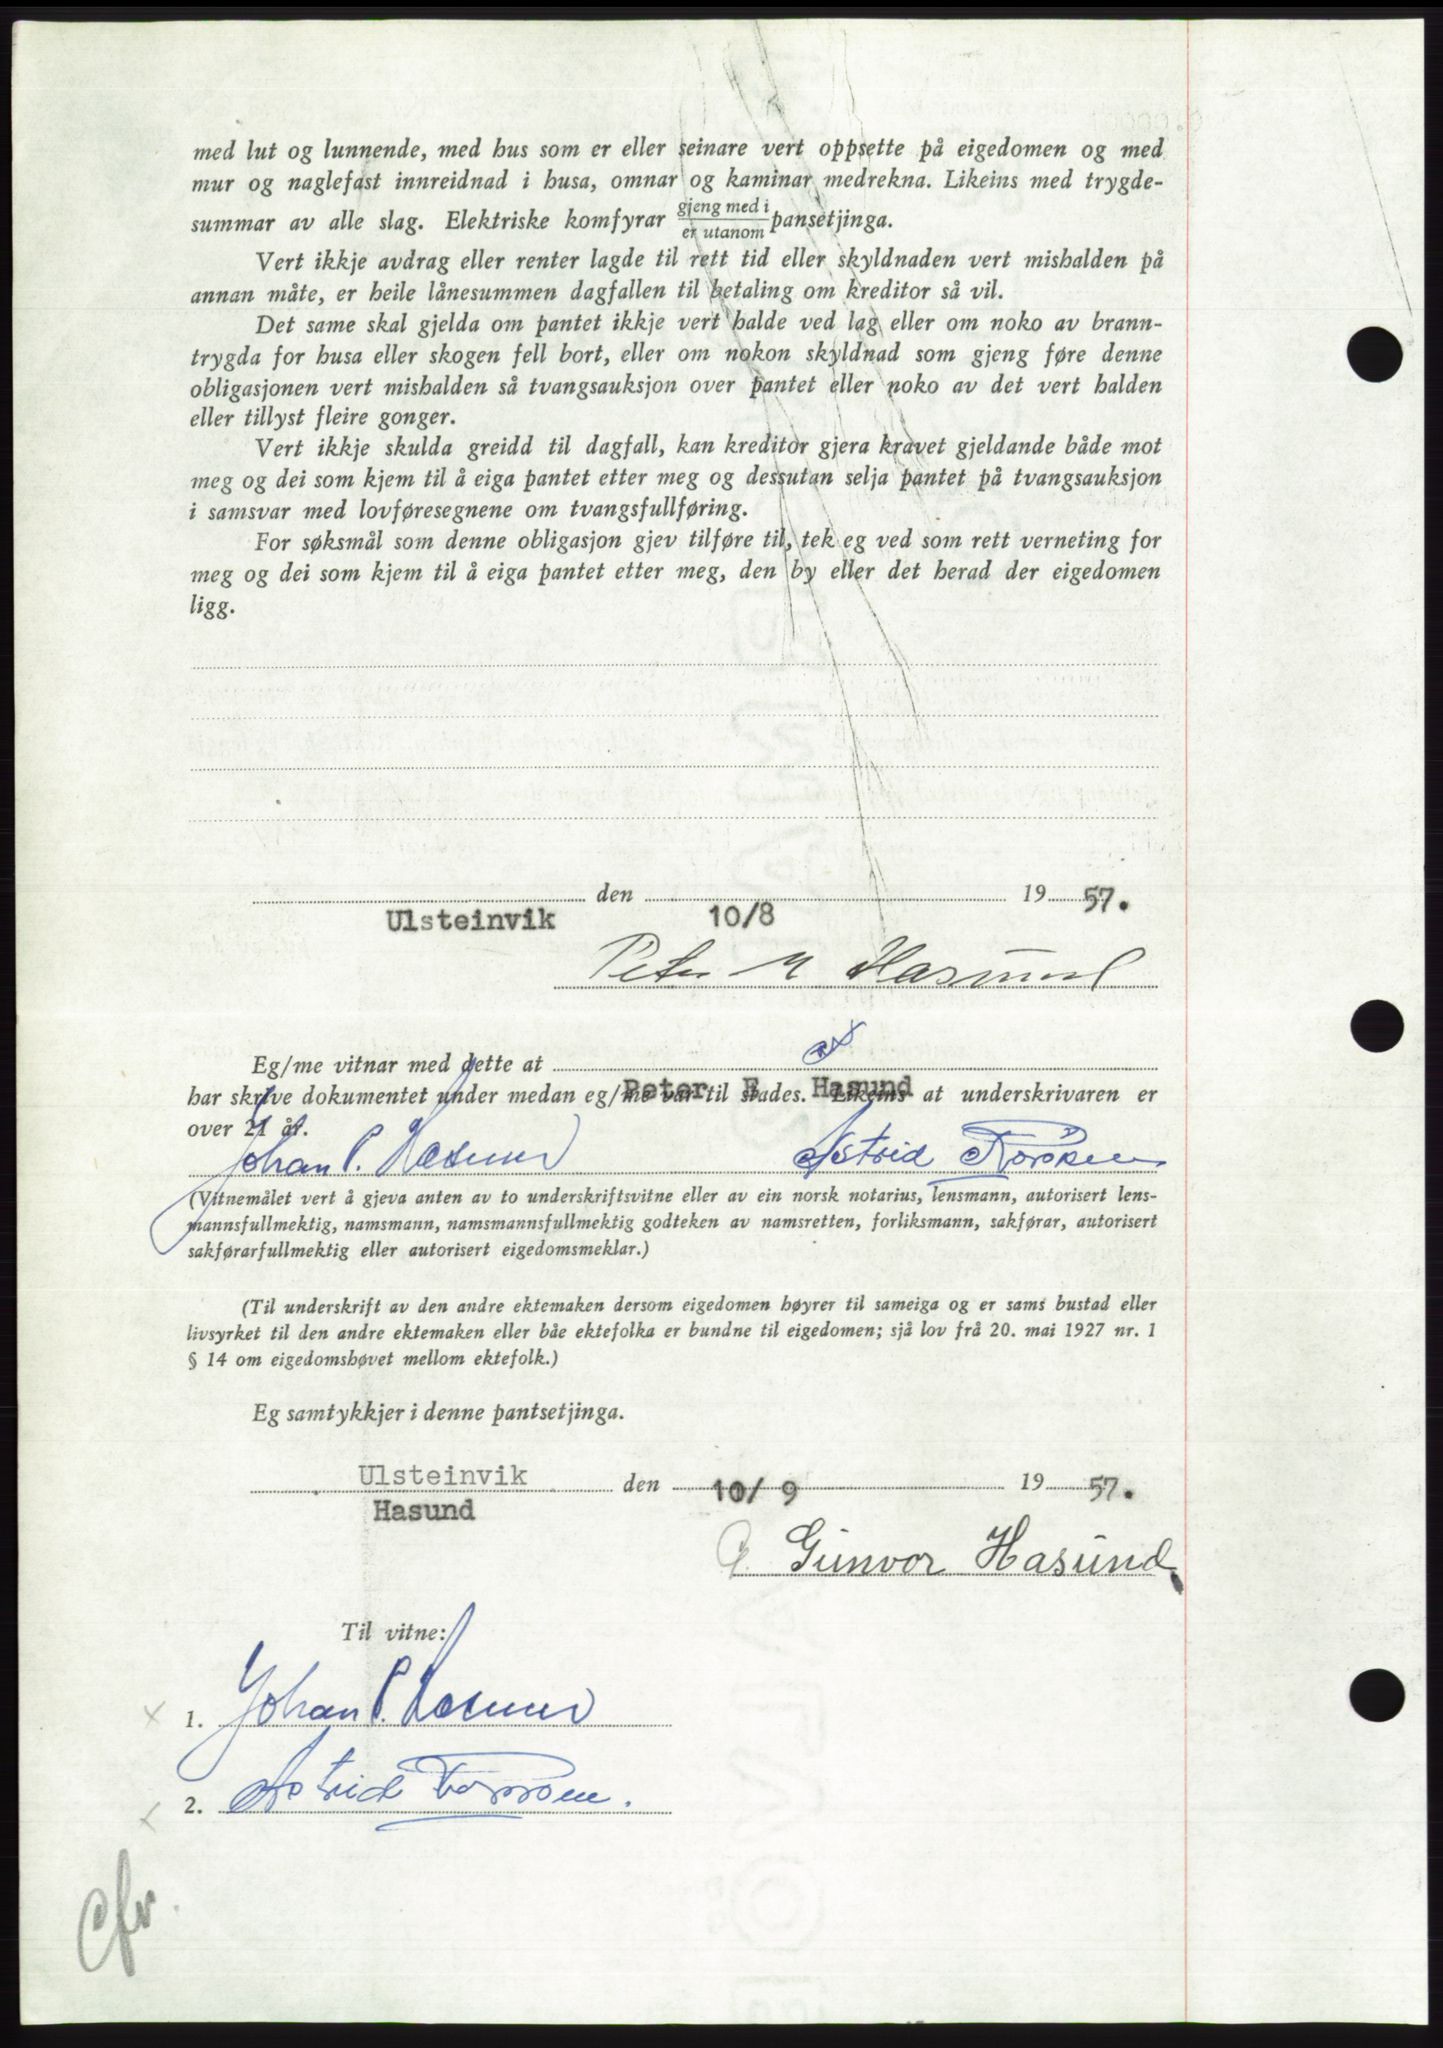 med lut og lunnende, med hus som er eller seinare vert oppsette på eigedomen og med
mur og naglefast innreidnad i husa, omnar og kaminar medrekna. Likeins med trygde-
summar av alle slag. Elektriske komfyrar gjeng med i / er utanom pansetjinga.
Vert ikkje avdrag eller renter lagde til rett tid eller skyldnaden vert mishalden på
annan måte, er heile lånesummen dagfallen til betaling om kreditor så vil.
Det same skal gjelda om pantet ikkje vert halde ved lag eller om noko av brann-
trygda for husa eller skogen fell bort, eller om nokon skyldnad som gjeng føre denne
obligasjonen vert mishalden så tvangsauksjon over pantet eller noko av det vert halden
eller tillyst fleire gonger.
Vert ikkje skulda greidd til dagfall, kan kreditor gjera kravet gjeldande både mot
meg og dei som kjem til å eiga pantet etter meg og dessutan selja pantet på tvangsauksjon
i samsvar med lovføresegnene om tvangsfullføring.
For søksmål som denne obligasjon gjev tilføre til, tek eg ved som rett verneting for
meg og dei som kjem til å eiga pantet etter meg, den by eller det herad der eigedomen
ligg.
Ulsteinvik den 10/8 19 57.
Peter M Hasund
Eg/me vitnar med dette at
Peter E. Hasund
har skrive dokumentet under medan eg/me var til stades. Likeins at underskrivaren er
over 21 år.
Johan P. Astrid
(Vitnemålet vert å gjeva anten av to underskriftsvitne eller av ein norsk notarius, lensmann, autorisert lens-
mannsfullmektig, namsmann, namsmannsfullmektig godteken av namsretten, forliksmann, sakførar, autorisert
sakførarfullmektig eller autorisert eigedomsmeklar.)
(Til underskrift av den andre ektemaken dersom eigedomen høyrer til sameiga og er sams bustad eller
livsyrket til den andre ektemaken eller båe ektefolka er bundne til eigedomen; sjå lov frå 20. mai 1927 nr. 1
§ 14 om eigedomshøvet mellom ektefolk.)
Eg samtykkjer i denne pantsetjinga.
Ulsteinvik den 10/ 9 19 57.
Hasund
Gunvor Hasund
Til vitne:
1. Johan P.
2. Astrid
cfr.